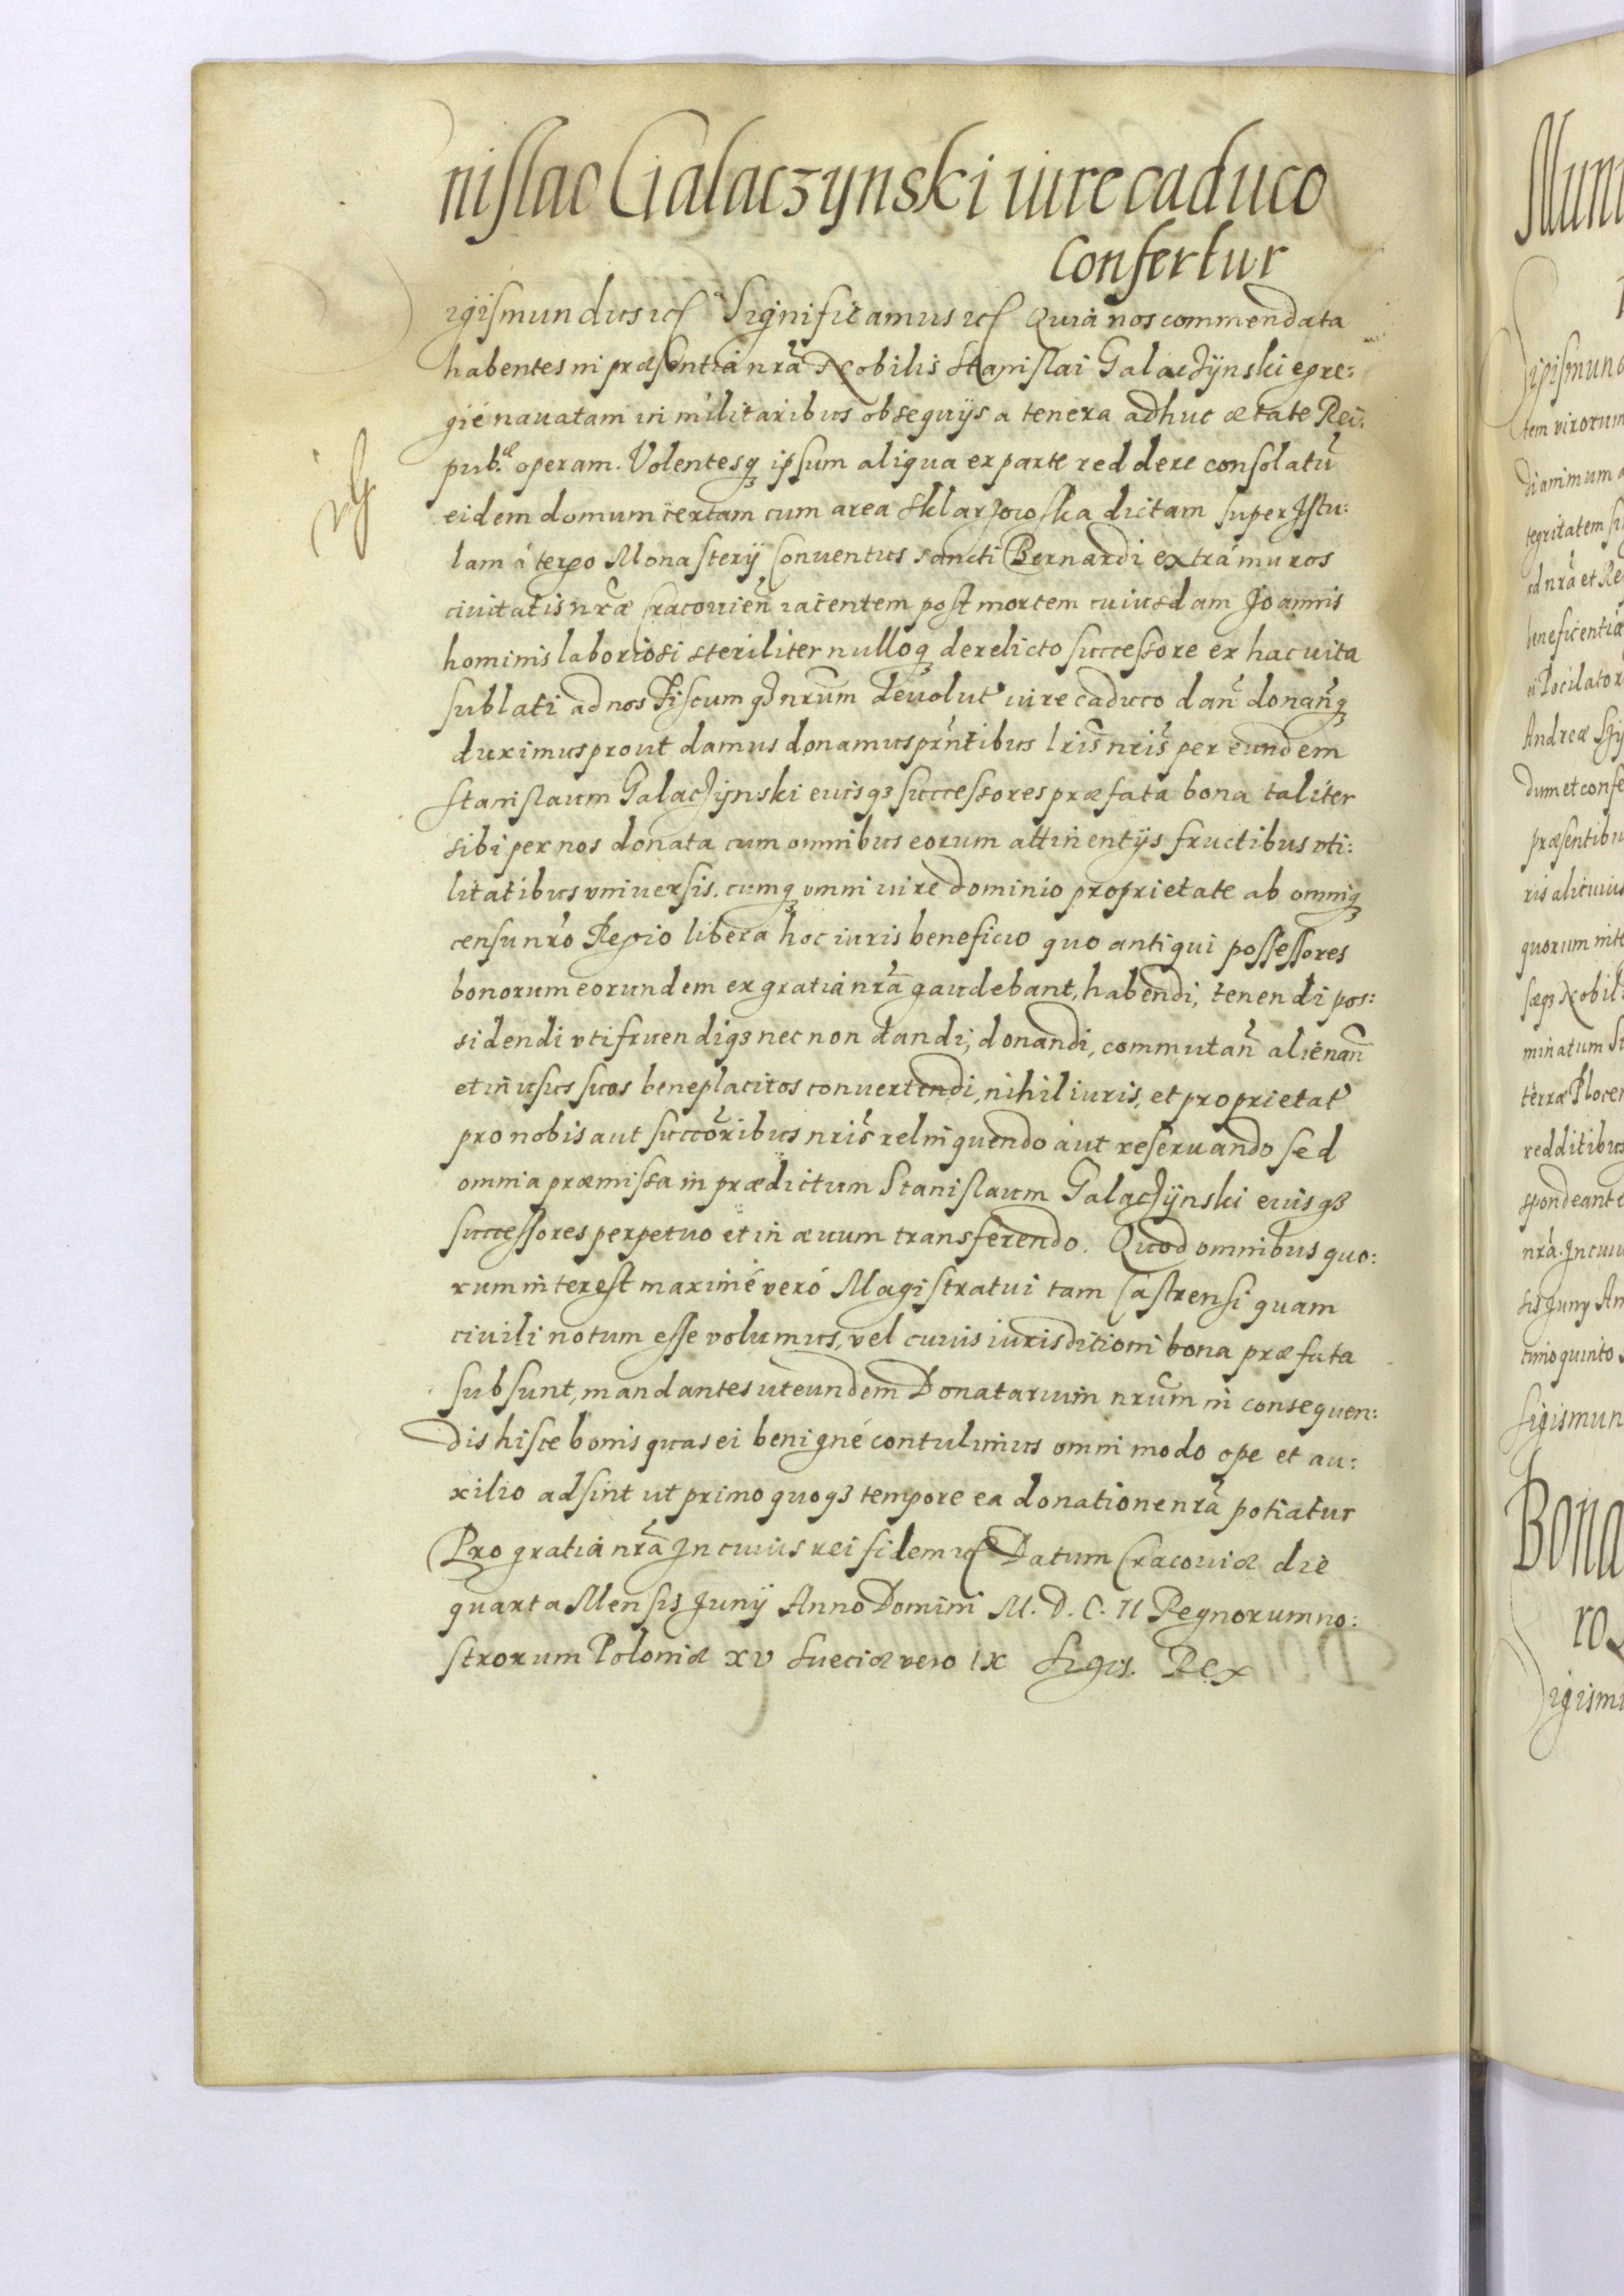 nislao Galaczynski iure caduco
Confertur
igismundus etc Significamus etc Quia nos commendata
habentes in præsentia nrã Nobilis Stanislai Galaczÿnski egre:
gié nauatam in militaribus obsequijs a tenera adhuc ætate Rei:
pub.æ operam. Volentesq ipsum aliqua ex parte reddere consolatũ
eidem domum certam cum area Sklarzowska dictam super Istu:
lam á tergo Monasterij Conuentus Sancti Bernardi extrá muros
ciuitatis nrãæ Cracouień iacentem post mortem cuiusdam Joannis
hominis laboriosi steriliter nulloq derelicto successore ex hac uita
sublati ad nos Fiscumq3 nrũm deuolut iure caduco dañ donañq
duximus prout damus donamus prñtibus lris̃ nris̃ per eundem
Stanislaum Galaczÿnski eiusq3 successores præfata bona taliter
sibi per nos donata cum omnibus eorum attinentijs fructibus vti:
litatibus vniuersis. cumq omni iure dominio proprietate ab omniq
censu nrõ Regio libera hoc iuris beneficio quo antiqui possessores
bonorum eorundem ex gratia nrã gaudebant, habendi, tenendi pos:
sidendi vtifruendiq3 nec non dandi, donandi, commutañ alienañ
et in usus suos beneplacitos conuertendi, nihil iuris, et proprietat
pro nobis aut succõribus nris̃ relinquendo aut reseruando sed
omnia præmissa in prædictum Stanislaum Galaczÿnski eiusq3
successores perpetuo et in æuum transferendo. Quod omnibus quo:
rum interest maximé veró Magistratui tam Castrensi quam
ciuili notum esse volumus, vel cuius iurisditioni bona præfata
subsunt, mandantes ut eundem Donatarium nrũm in consequen:
dis hisce bonis quas ei benigné contulimus omni modo ope et au:
xilio adsint ut primo quoq3 tempore ea donatione nrã potiatur
Pro gratia nrã In cuius rei fidem etc Datum Cracouiæ die
quarta Mensis Junij Anno Domini M. D. C. II Regnorum no:
strorum Poloniæ XV Sueciæ vero IX Sigis. Rex